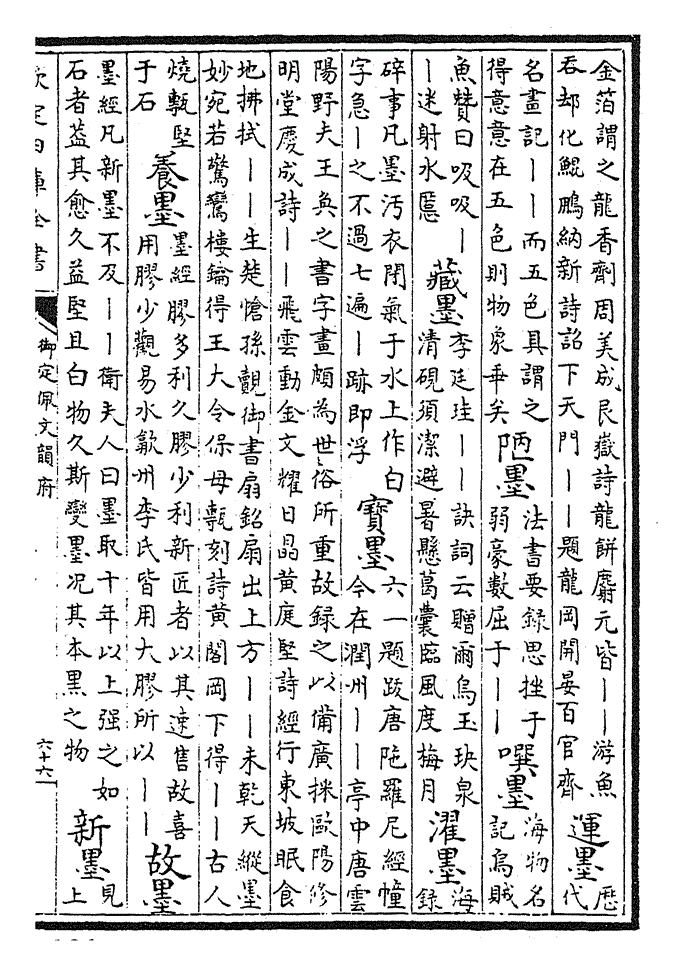 金箔謂之龍香劑周美成艮嶽詩龍餅麝元皆——游魚
吞却化鯤鵬納新詩詔下天門——題龍岡開晏百官齊
運墨 歷
代
名畫記——而五色具謂之
得意意在五色則物象乖矣
陋墨 法書要錄思挫于
弱豪數屈于——
噀墨 海物名
記烏賊
魚贊曰吸吸—
—迷射水慝
藏墨 李廷珪——訣詞云贈爾烏玉玦泉
清硯須潔避暑懸葛囊臨風度梅月
濯墨 海
錄
碎事凡墨汚衣閉氣于水上作白
字急—之不過七遍—跡即浮
寶墨 六一題跋唐陁羅尼經幢
今在潤州——亭中唐雲
陽野夫王奐之書字畫頗為世俗所重故錄之以備廣採歐陽修
明堂慶成詩——飛雲動金文耀日晶黄庭堅詩經行東坡眠食
地拂拭——生楚愴孫覿御書扇銘扇出上方——未乾天縱墨
妙宛若驚鸞樓鑰得王大令保母甎刻詩黄閣岡下得——古人
燒甎堅
于石
養墨 墨經膠多利久膠少利新匠者以其速售故喜
用膠少觀易水歙州李氏皆用大膠所以——
故墨 見
墨經凡新墨不及——衛夫人曰墨取十年以上强之如
石者葢其愈久益堅且白物久斯變墨况其本黒之物
新墨 上
欽定四庫全書
御定佩文韻府
六十六